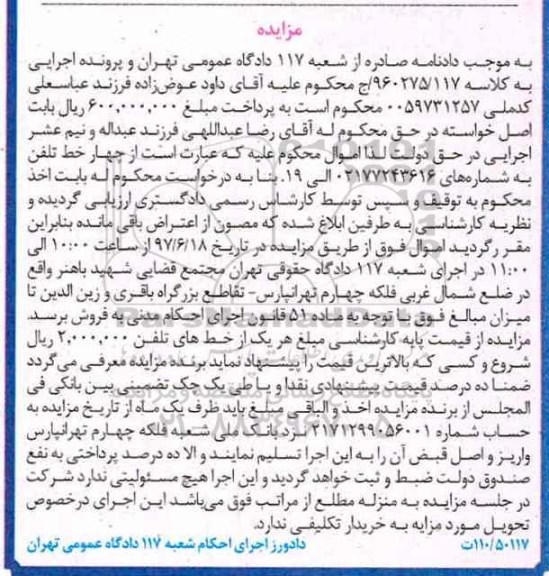 مزایده
به موجب دادنامه صادره از شعبه ۱۱۷ دادگاه عمومی تهران و پرونده اجرایی
به کلاسه ۹۶۰۲۷۵/۱۱۷/ج محکوم علیه آقای داود عوض‌زاده فرزند عباسعلی
کدملی ۰۰۵۹۷۳۱۲۵۷ محکوم است به پرداخت مبلغ ۶۰۰,۰۰۰,۰۰۰ ریال بابت
اصل خواسته در حق محکوم له آقای رضا عبداللهی فرزند عبداله و نیم عشر
اجرایی در حق دولت لذا اموال محکوم علیه که عبارت است از چهار خط تلفن
به شماره‌های ۰۲۱۷۷۲۴۳۶۱۶ الی ۱۹. بنا به درخواست محکوم له بابت اخذ
محکوم به توقیف و سپس توسط کارشناس رسمی دادگستری ارزیابی گردیده و
نظریه کارشناسی به طرفین ابلاغ شده که مصون از اعتراض باقی مانده بنابراین
مقرر گردید اموال فوق از طریق مزایده در تاریخ ۹۷/۶/۱۸ از ساعت ۱۰:۰۰ الی
۱۱:۰۰ در اجرای شعبه ۱۱۷ دادگاه حقوقی تهران مجتمع قضایی شهید باهنر واقع
در ضلع شمال غربی فلکه چهارم تهرانپارس- تقاطع بزرگراه باقری و زین الدین تا
میزان مبالغ فوق با توجه به ماده ۵۱ قانون اجرای احکام مدنی به فروش برسد.
مزایده از قیمت پایه کارشناسی مبلغ هر یک از خط های تلفن ۲,۰۰۰,۰۰۰ ریال
شروع و کسی که بالاترین قیمت را پیشنهاد نماید برنده مزایده معرفی می‌گردد
ضمنا ده درصد قیمت پیشنهادی نقدا و یا طی یک چک تضمینی بین بانکی فی
المجلس از برنده مزایده اخذ و الباقی مبلغ باید ظرف یک ماه از تاریخ مزایده به
حساب شماره ۲۱۷۱۲۹۹۰۵۶۰۰۱ نزد بانک ملی شعبه فلکه چهارم تهرانپارس
واریز و اصل قبض آن را به این اجرا تسلیم نمایند و الا ده درصد پرداختی به نفع
صندوق دولت ضبط و ثبت خواهد گردید و این اجرا هیچ مسئولیتی ندارد شرکت
در جلسه مزایده به منزله مطلع از مراتب فوق می‌باشد این اجرای درخصوص
تحویل مورد مزایه به خریدار تکلیفی ندارد.
۱۱۰/۵۰۱۱۷ت دادورز اجرای احکام شعبه ۱۱۷ دادگاه عمومی تهران